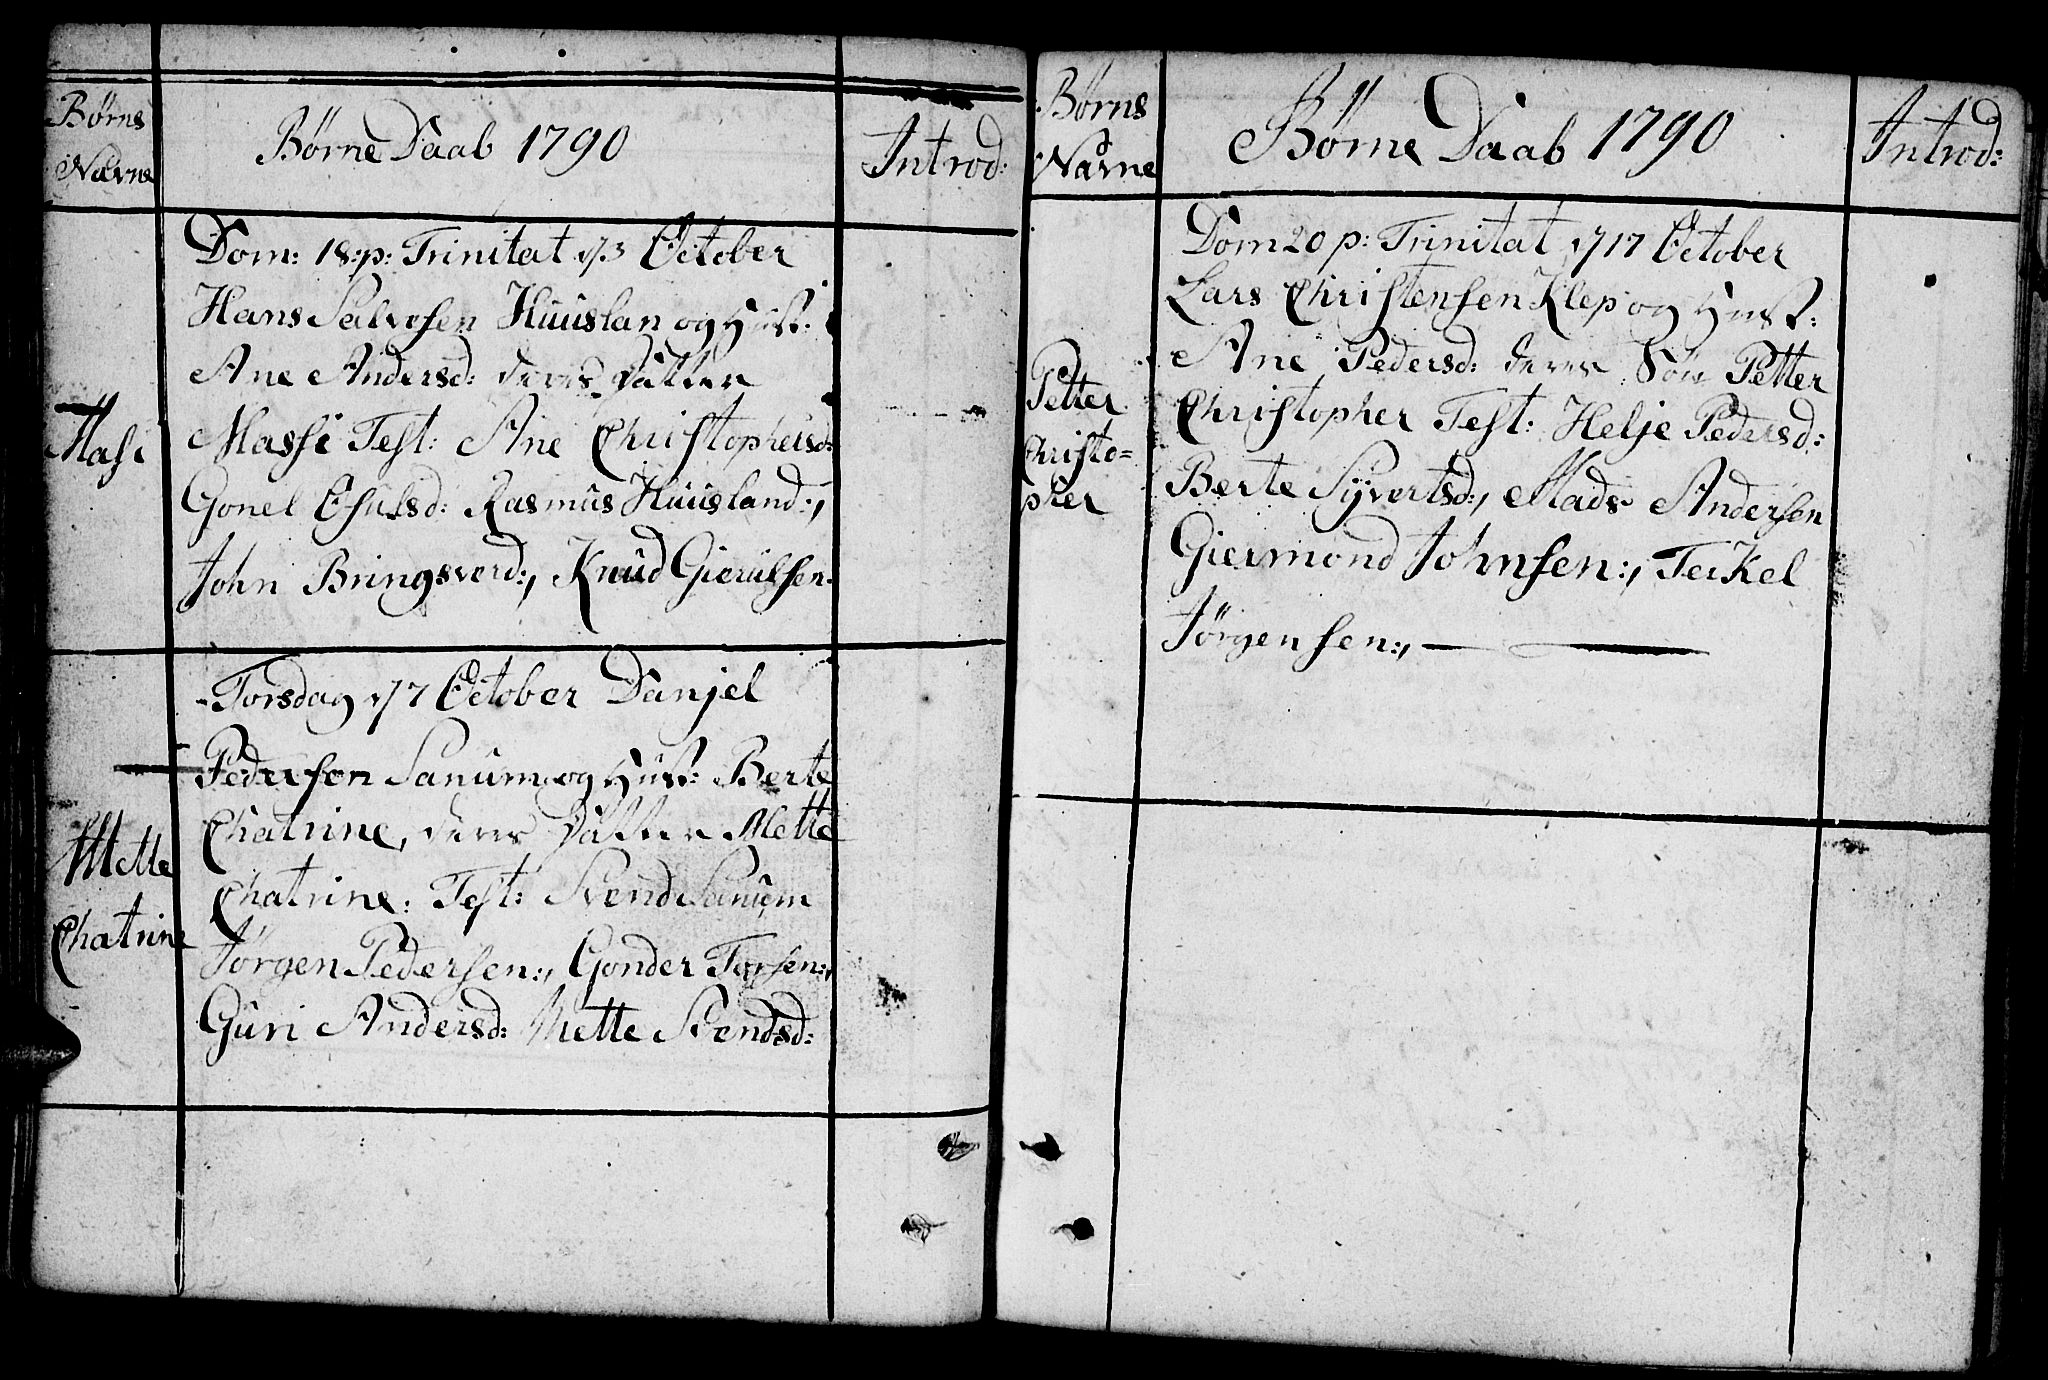 Børns
Nævne
Børne Daab 1790
Introd:
Dom: 18:p: Trinitat d 3 October
Hans Salvesen Huuslan og Hust:
Ane Andersd: deres Datter
Massi Test: Ane Christophersd:
Gonel Esulsd: Rasmus Huusland:,
John Bringsverd:, Knud Gierulsen
Masi
Torsdag d 7 October Danjel
Pedersen Sanum og Hust: Berte
Chatrine, deres Datter Mette
Chatrine: Test: Svend Sanum
Jørgen Pedersen:, Gonder Torsen:,
Guri Andersd: Mette Svendsd:
Mette
Chatrine
Børns
Navne
Børne Daab 1790
Introd:
Dom 20 p: Trinitat d 17 October
Lars Christensen Klep og Hust:
Ane Pedersd: deres Søn Petter
Christopher Test: Helje Pedersd:
Berte Syvertsd:, Mads Andersen
Giermond Johnsen:, Terkel
Jørgensen:,
Petter
Christo=
pher